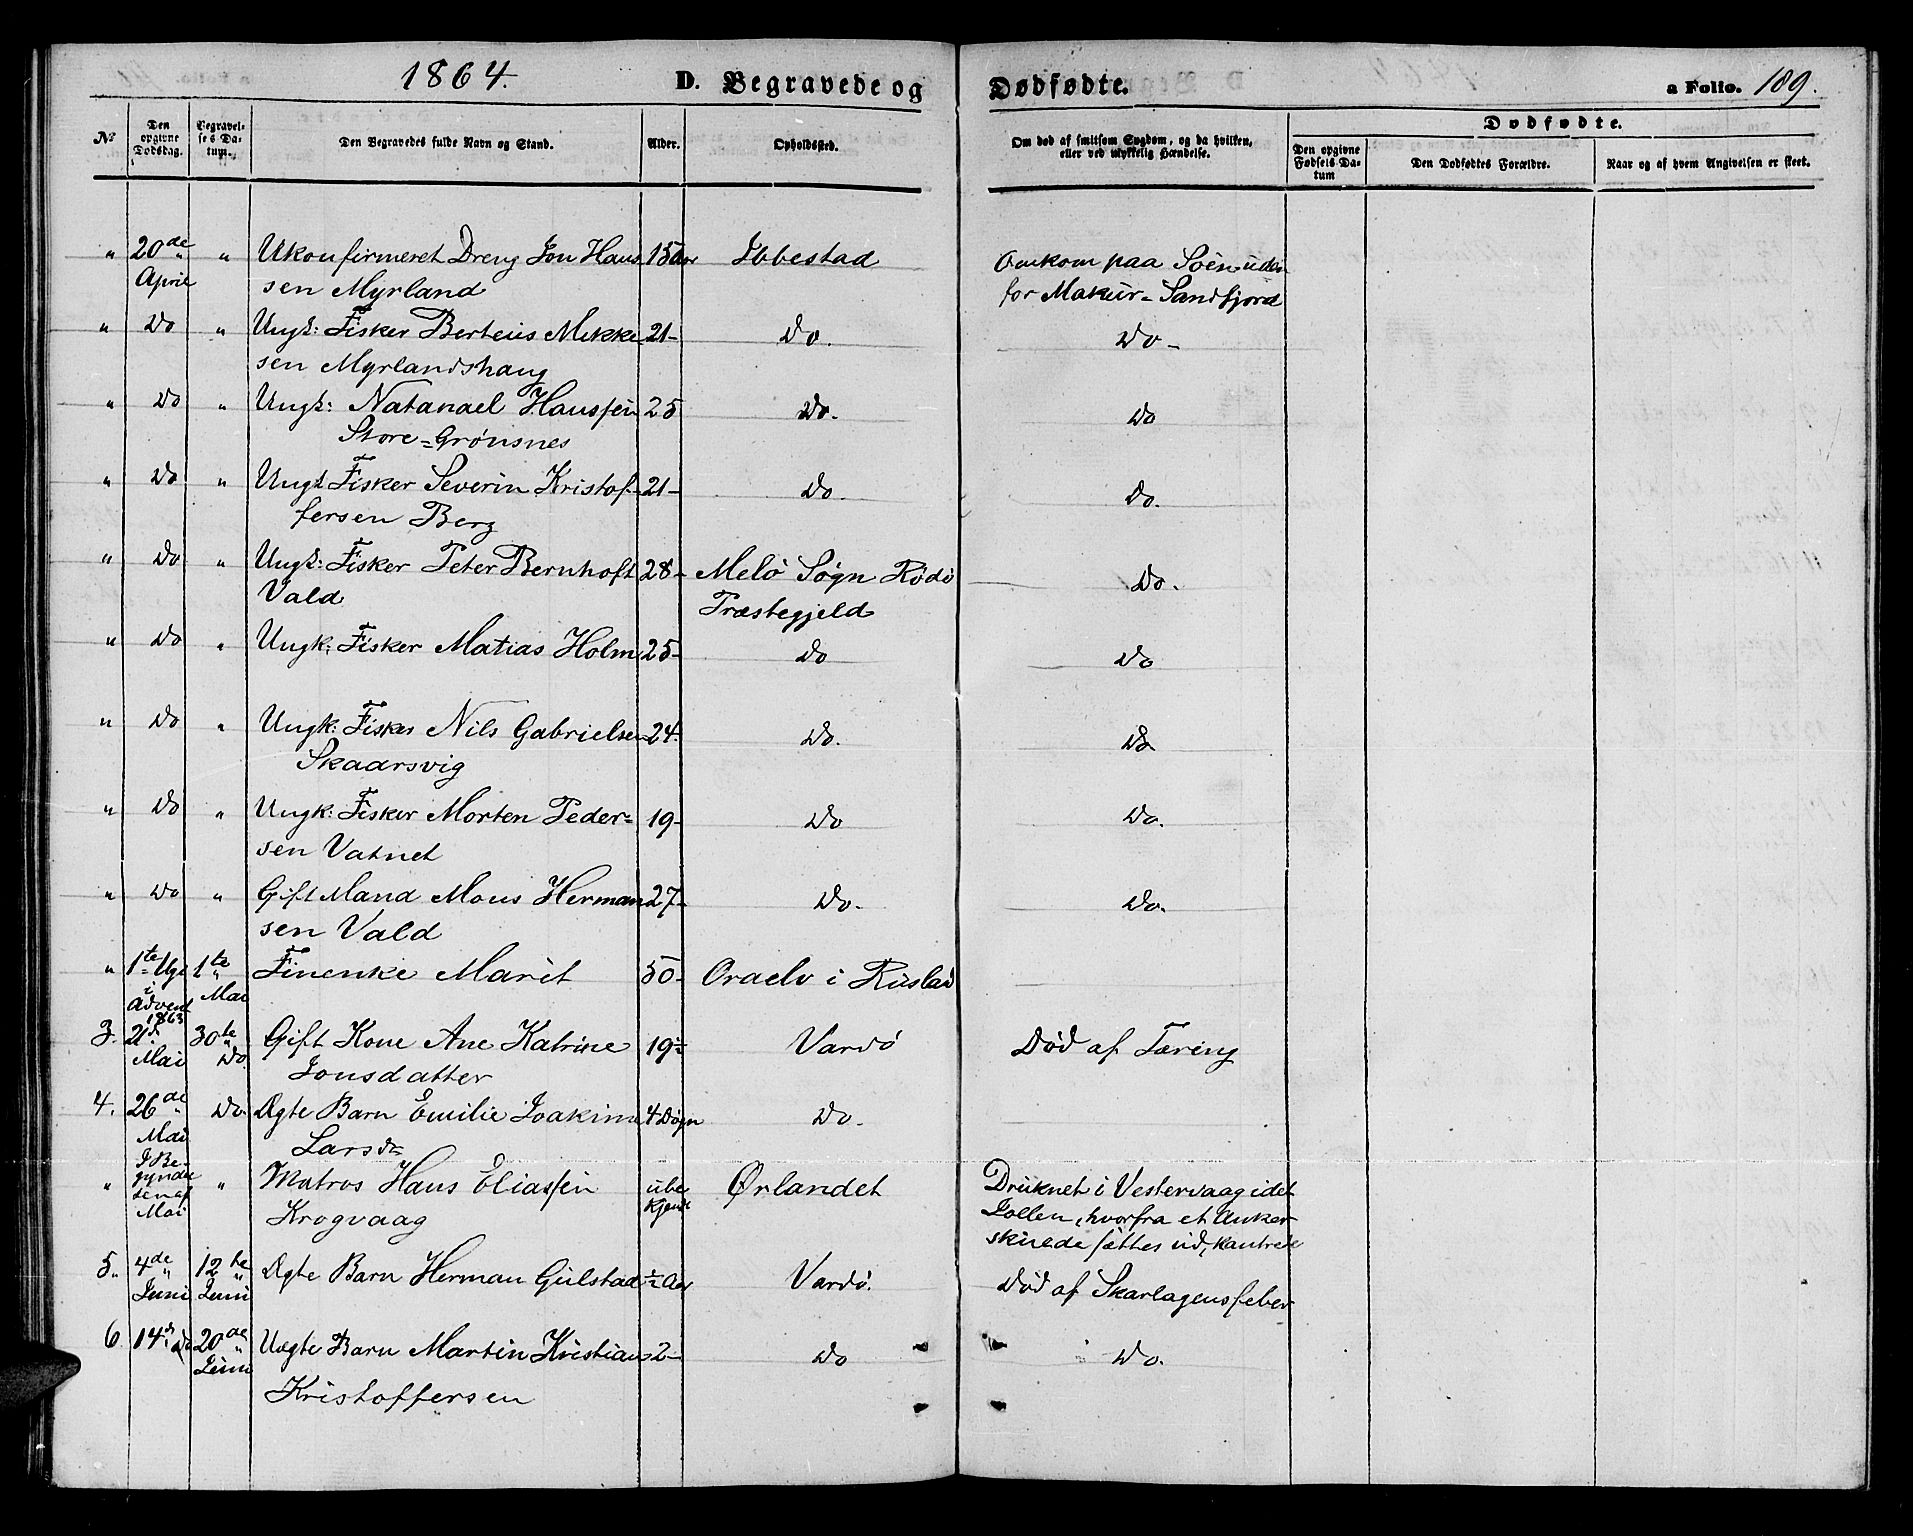 1864. D. Begravede og Dødfødte. a Folio. 189.
No Den opgivne Dødsdag. Begravelses Datum. Den Begravedes fulde Navn og Stand. Alder. Opholdssted. Om død af smitsom Sygdom, og da hvilken, eller ved ulykkelig Hændelse. Dødfødte. Den opgivne Fødsels Datum Den Dødfødtes Forældre. Naar og af hvem Angivelsen er skeet.
" 20de " Ukonfirmeret Dreng Jon Hans 15 Aar Ibbestad Omkom paa Søen uden
April sen Myrland for Makur-Sandfjord
" Do " Ungk: Fisker Berteus Mikkel 21- Do. Do-
sen Myrlandshaug
" Do " Ungk: Natanael Hanssen 25 Do. Do
Store-Grønsnes
" Do " Ungk Fisker Severin Kristof- 21- Do. Do.
fersen Berg
" Do " Ungk: Fisker Peter Bernhoft 28- Melø Sogn Rødø Do.
Vald Præstegjeld
" Do " Ungk: Fisker Matias Holm 25- Do Do
" Do " Ungk: Fisker Nils Gabrielsen 24. Do. Do
Skaarsvig
" Do " Ungk: Fisker Morten Peder= 19- Do Do.
sen Vatnet
" Do " Gift Mand Mons Herman 27- Do. Do.
sen Vald
" 1te Uge 1te Finenke Marit 50- Oraelv i Rusland
i Advent 1863 Mai
3. 21de 30te Gift Kone Ane Katrine 19½ Vardø Død af Tæring
Mai Do. Jonsdatter
4. 26de Do. Ægte Barn Emilie Joakime 4 Døgn Do.
Mai Larsdr
" I Be- " Matros Hans Eliassen ube Ørlandet Druknet i Vestervaag idet
gyndel Krogvaag kjendt Jollen, hvorfra et Anker
sen af skulde søttes ud, kantrede
Mai
5. 4de 12te Ægte Barn Herman Gulstad ½ Aar Vardø. Død af Skarlagensfeber
Juni Juni
6 14de Do 20de Uægte Barn Martin Kristian 2- Do Do.
Juni Kristoffersen